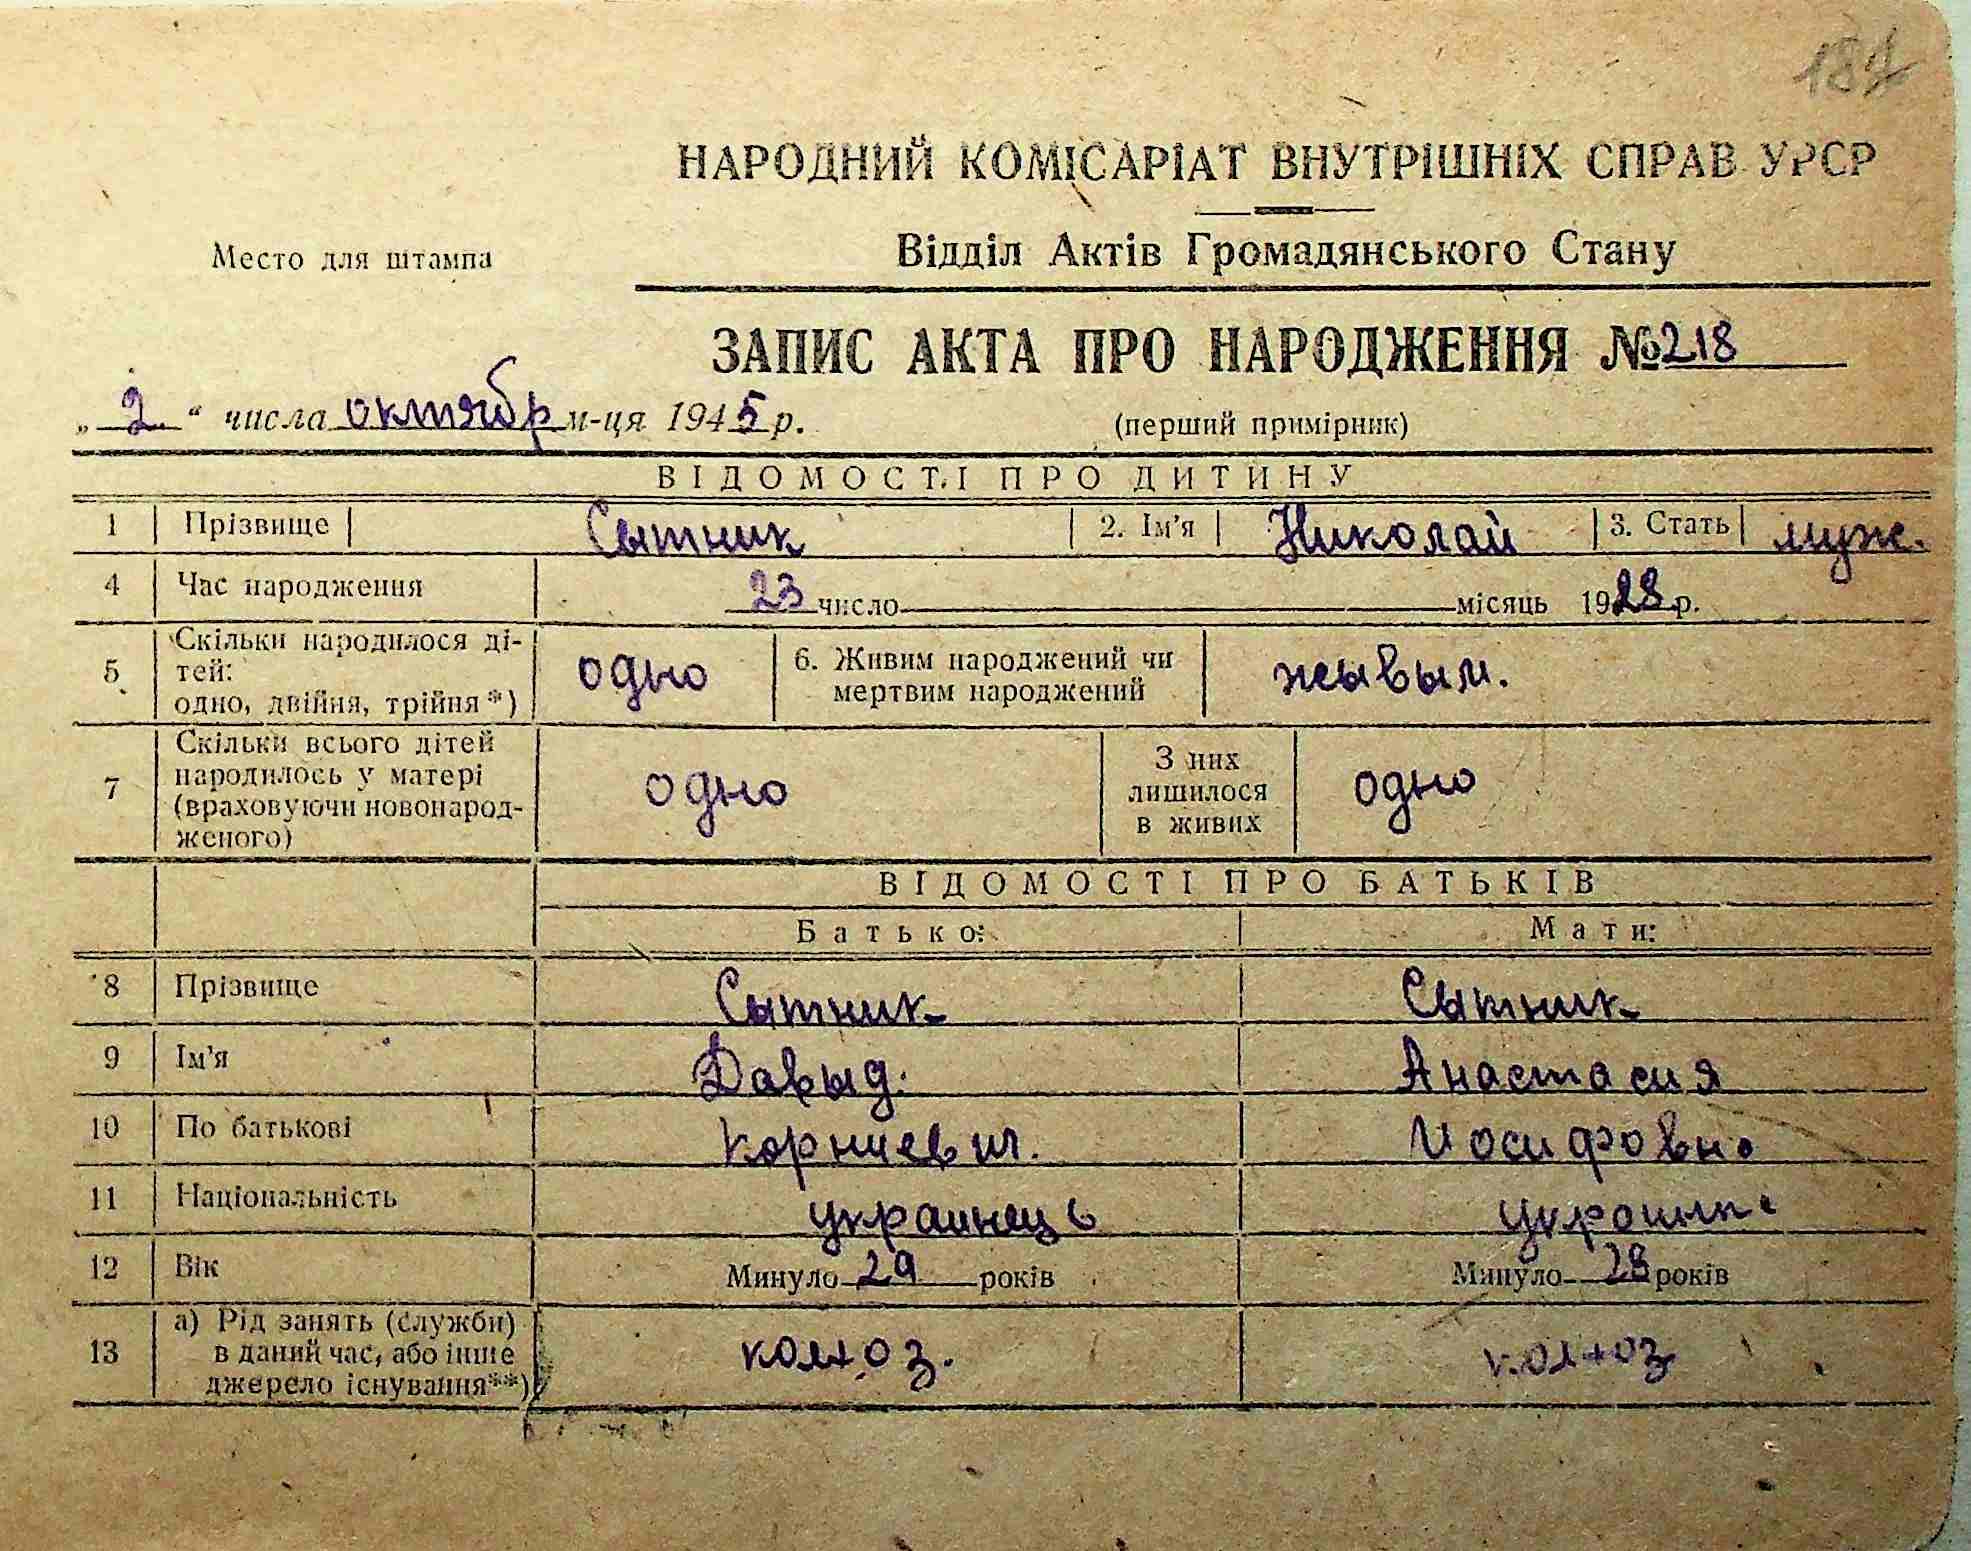 187
НАРОДНИЙ КОМІСАРІАТ ВНУТРІШНІХ СПРАВ УРСР
Відділ Актів Громадянського Стану
Место для штампа
ЗАПИС АКТА ПРО НАРОДЖЕННЯ №218
„2.“ числа октябр м-ця 1945 р.
(перший примірник)
ВІДОМОСТІ ПРО ДИТИНУ
1 Прізвище Сытник 2. Ім’я Николай 3. Стать муж.
4 Час народження 23 число місяць 1928 р.
5 Скільки народилося ді-
тей:
одно, двійня, трійня*) одно 6. Живим народжений чи
мертвим народжений жывым.
7 Скільки всього дітей
народилось у матері
(враховуючи новонарод-
женого) одно З них
лишилося
в живих одно
ВІДОМОСТІ ПРО БАТЬКІВ
Батько: Мати:
8 Прізвище Сытник Сытник
9 Ім’я Давыд. Анастасия
10 По батькові Корниевич. Иосифовна
11 Національність украинець украинк
12 Вік Минуло 29 років Минуло 28 років
13 а) Рід занять (служби)
в даний час, або інше
джерело існування**) колхоз. колхоз